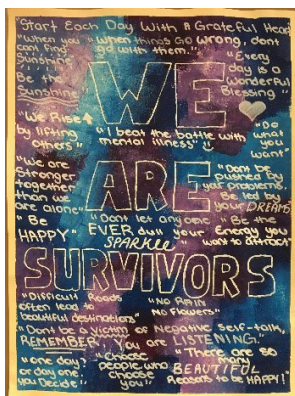 "Start Each Day With A Grateful Heart
"When you
cant find
Sunshine
Be the
Sunshine"
"When things Go wrong, dont
go with them."
"Every
day is a
Wonderful
Blessing"
WE
"We Rise
by lifting
others"
"I beat the battle with
mental illness"
"Do
what
you
want"
ARE
"We are
Stronger
together
than we
are alone"
"Dont be
pushed by
your problems.
Be led by
your DREAMS
"Be
HAPPY"
"Dont let anyone
EVER dull your
SPARKLE
"Be the
Energy you
want to attract"
SURVIVORS
"Difficult Roads
often lead to
beautiful destinations"
"NO RAIN
No Flowers"
"Dont be a victim of Negative Self-talk,
REMEMBER, You are LISTENING."
"one day?
or day one.
You Decide"
"Choose
people who
choose
you"
"There are so
many
BEAUTIFUL
Reasons to be HAPPY!"